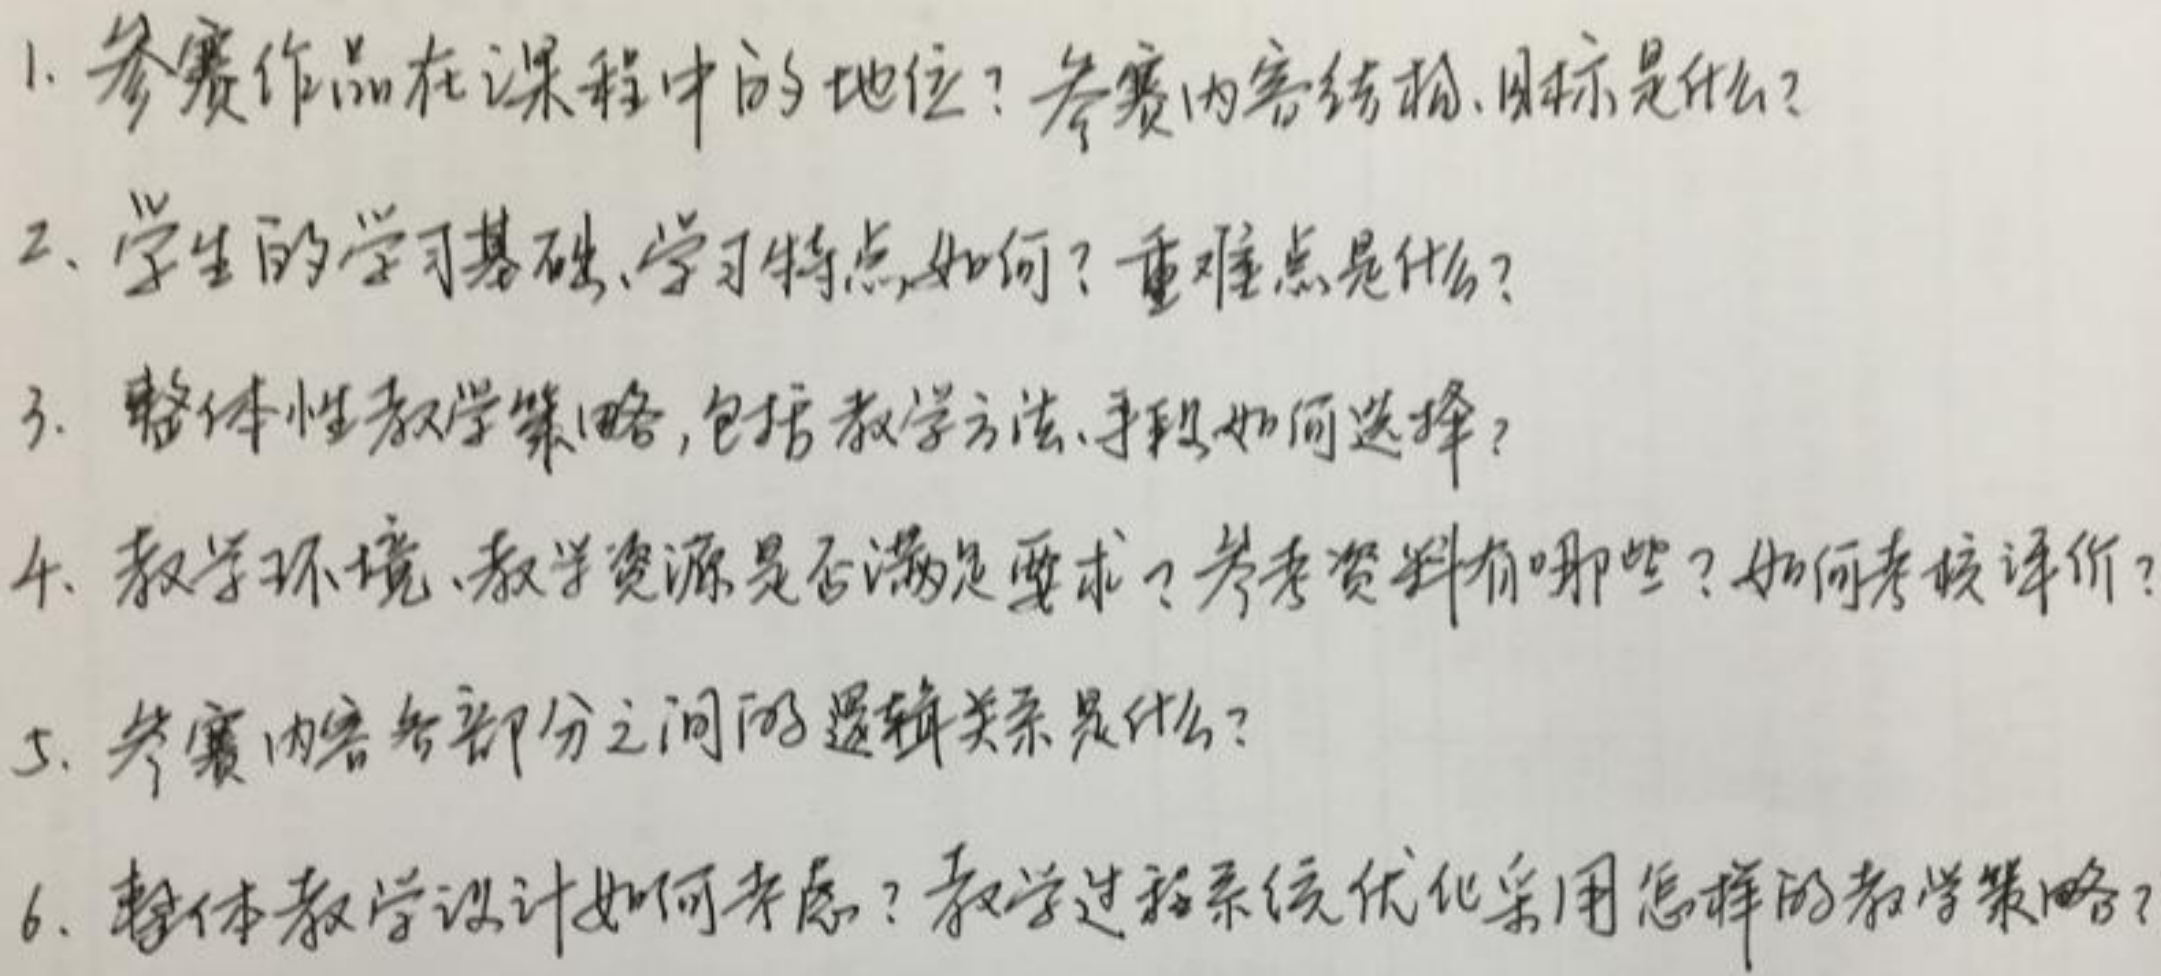 1. 参赛作品在课程中的地位？参赛内容结构、目标是什么？
2、学生的学习基础、学习特点如何？重难点是什么？
3. 整体性教学策略，包括教学方法、手段如何选择？
4、教学环境、教学资源是否满足要求？参考资料有哪些？如何考核评价？
5、参赛内容各部分之间的逻辑关系是什么？
6、整体教学设计如何考虑？教学过程系统优化采用怎样的教学策略？